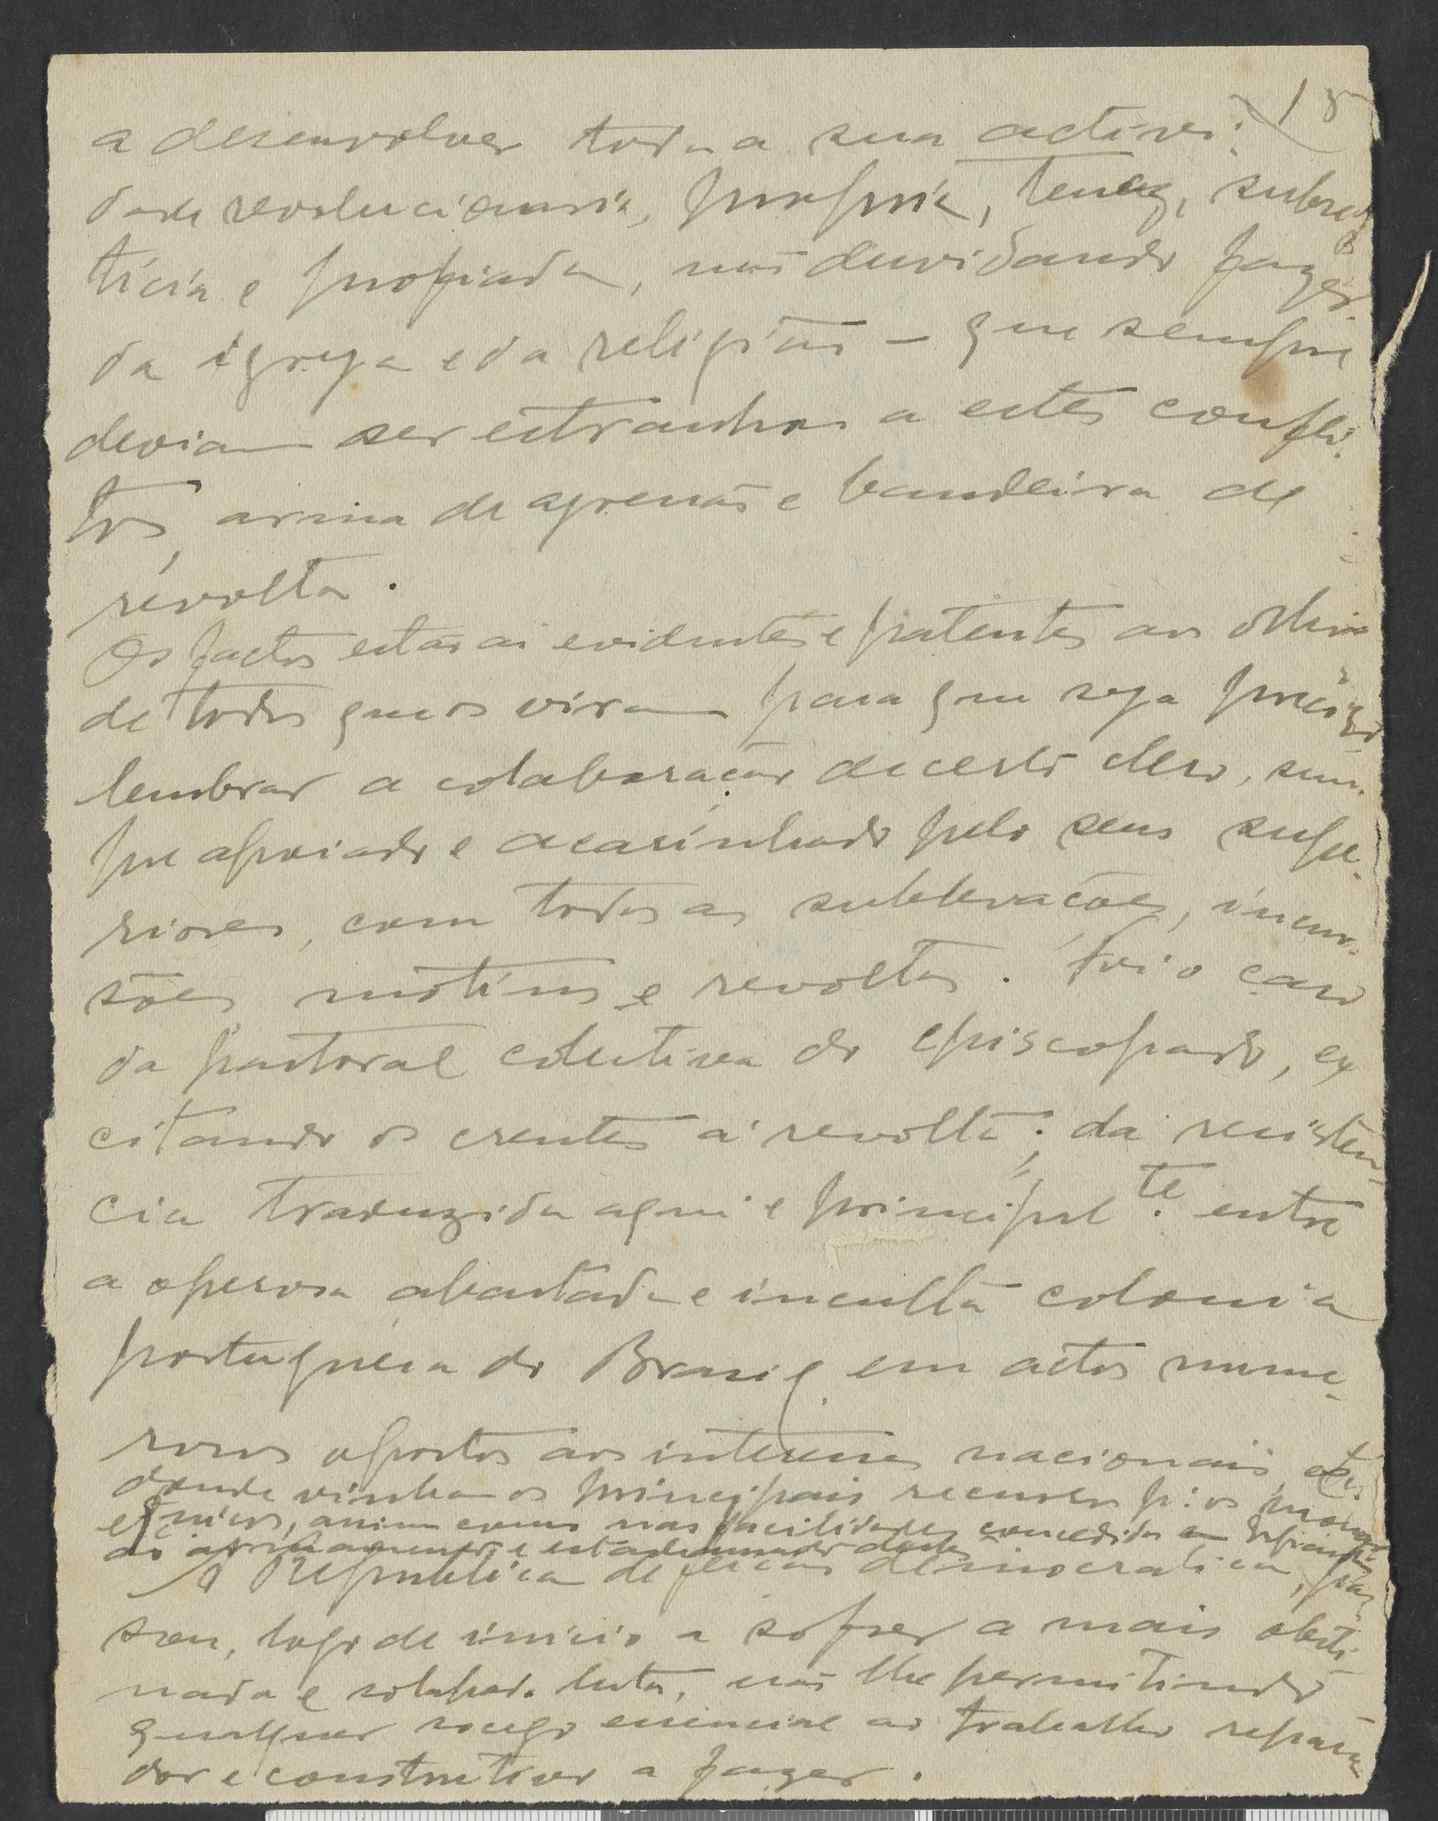 15
a desenvolver toda a sua activi-
dade revolucionaria, propria, tenaz, subrep
ticia e profiada, não duvidando fazer
da igreja e da religião – que sempre
deviam ser estranhas a estes confli-
tos, arma de agressão e bandeira de
revolta.
Os factos estão ai evidentes e patentes aos olhos
de todos que os viram para que seja preciso
lembrar a colaboração de certo clero, sem-
pre apoiado e acarinhado pelo seus supe-
riores, com todas as sublevações, incur-
sões motins e revoltas. Foi o caso
da pastoral colectiva do episcopado, ex
citando os crentes á revolta; da resisten-
cia traduzida aqui e principal.te entre
a operosa abastada e inculta colonia
portuguesa do Brasil em actos nume-
rosos opostos aos interesses nacionais,
donde vinham os principais recursos p.ª os
assim como nas facilidades concedidas em
ao armamento e
A Republica de feição democratica, pas-
sou, logo de inicio a sofrer a mais obsti
nada e solapada luta, não lhe permitindo
qualquer socego essencial ao trabalho repara
dor e construtivo a fazer.